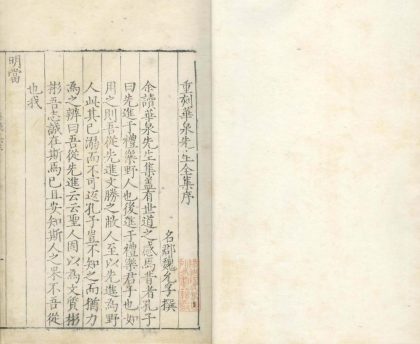 重刻華泉先生全集序
名郡魏允孚撰
余讀華泉先生集蓋有世道之感焉昔者孔子
曰先進于禮樂野人也後進于禮樂君子也如
用之則吾從先進文勝之敝人至以先進為野
人此其已溺而不可返孔子豈不知之而猶力
為之辨曰吾從先進云云聖人固以為文質彬
彬吾忘誠在斯焉已且安知斯人之果不吾從
也我
明當